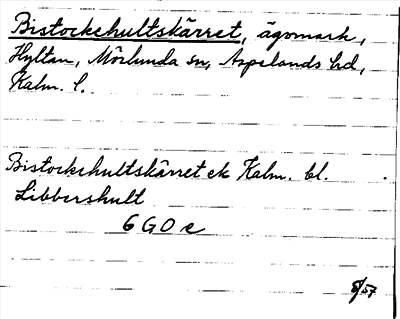 Bistockehultskärret, ägomark,
Hyltan, Mörlunda sn, Aspelands hd,
Kalm. l.
Bistockehultskärret ek Kalm. bl.
Libbershult
6 G O e
8/57